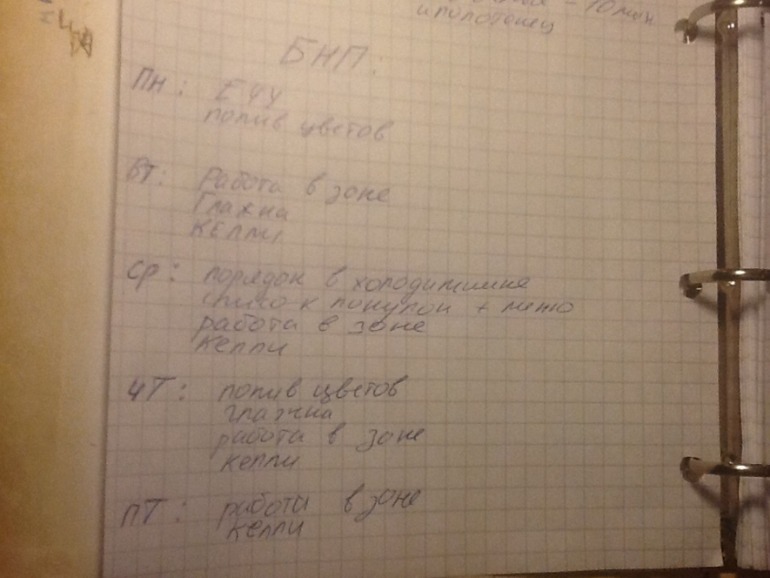 - 10 мин
и полотенец
БНП:
ПН: ЕЧУ
полив цветов
ВТ: Работа в зоне
Глажка
Келли
СР: порядок в холодильнике
список покупок + меню
работа в зоне
келли
ЧТ: полив цветов
глажка
работа в зоне
келли
ПТ: работа в зоне
келли